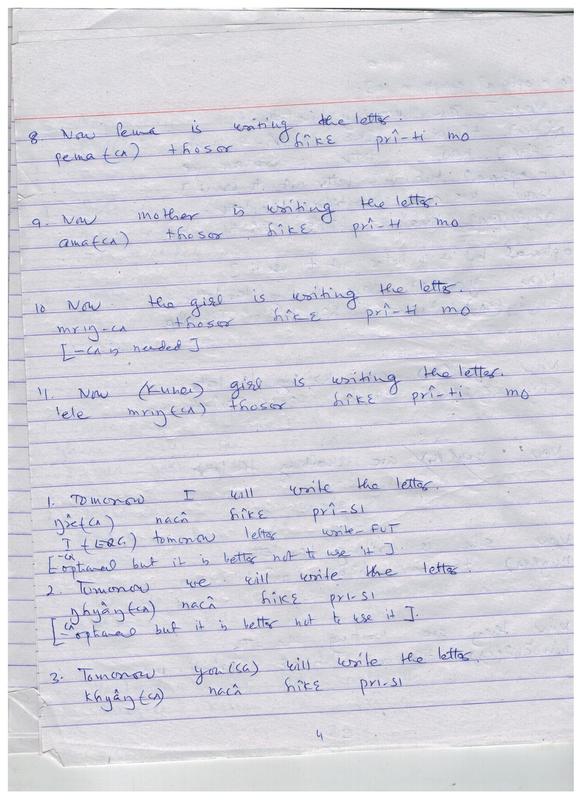 8. Now Pema is writing the letter.
pema(cʌ) thosor ɦîkɛ prî-ti mo
9. Now mother is writing the letter.
ama(cʌ) thosor ɦîkɛ prî-ti mo
10 Now the girl is writing the letter.
mriŋ-cʌ thosor ɦîkɛ prî-ti mo
[-cʌ is needed]
11. Now girl is writing the letter.
lele mriŋ(cʌ) thosor ɦîkɛ prî-ti mo
1. Tomorrow I will write the letter.
(cʌ) nacʌ̂ ɦîkɛ prî-sɪ
I (ERG) tomorrow letter write-FUT
[-cʌ optional but it is better not to use it].
2. Tomorrow we will write the letter.
ŋhyâŋ(cʌ) nacʌ̂ ɦîkɛ pri-sɪ
[-cʌ optional but it is better not to use it].
3. Tomorrow you(SG) will write the letter.
khyâŋ(cʌ) nacʌ̂ ɦîkɛ pri-sɪ
4